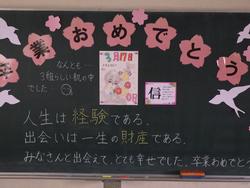 卒業おめでとう
なんと…
でした…
3月17日
信
人生は経験である。
出会いは一生の財産である。
みなさんと出会えて、とても幸せでした。卒業おめでとう